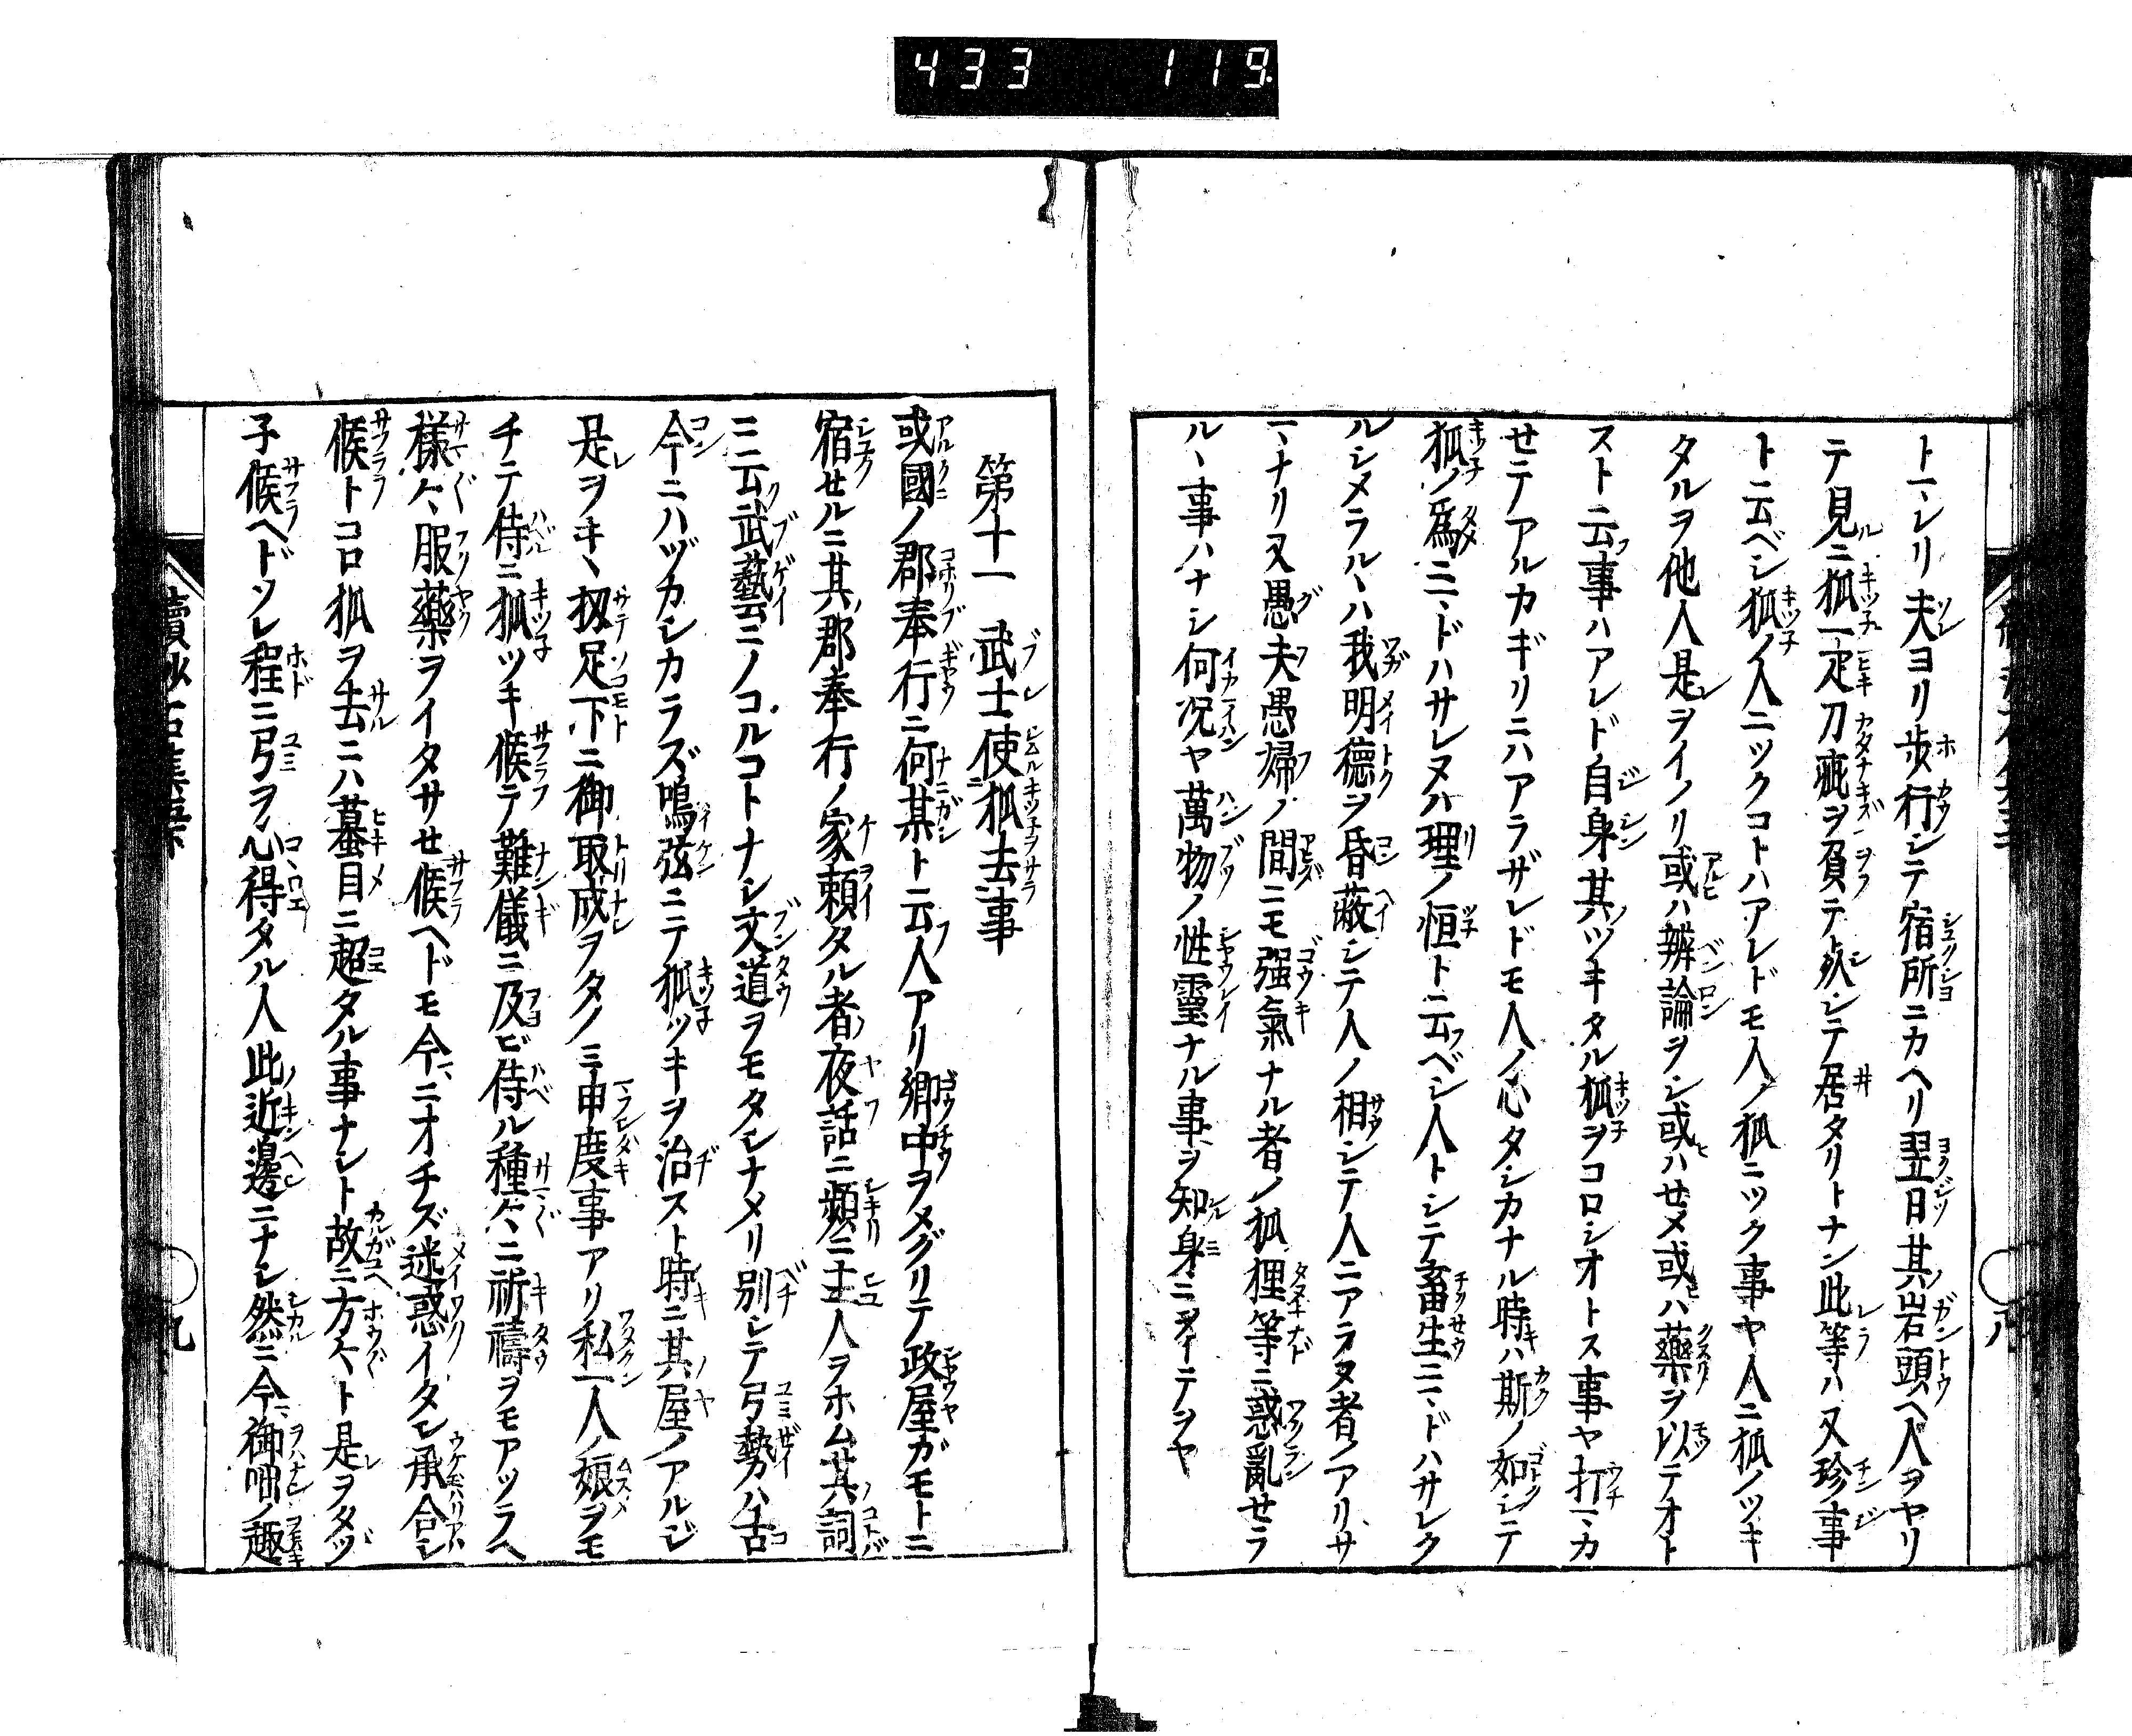 433 119
トヽレリ夫ヨリ歩行シテ宿所ニカヘリ翌日其岩頭ヘ人ヲヤリ
テ見ルニ狐一疋刀疵ヲ負テ死シテ居タリトナン此等ハ又珍事
ト云ベシ狐ノ人ニツクコトハアレドモ人ノ狐ニツク事ヤ人ニ狐ノツキ
タルヲ他人是ヲイノリ或ハ辨論ヲシ或ハせメ或ハ藥ヲ以テオト
スト云事ハアレド自身其ツキタル狐ヲコロシオトス事ヤ打マカ
せテアルカギリニハアラザレドモ人ノ心タシカナル時ハ斯ノ如シテ
狐ノ爲ニマドハサレヌハ理ノ恒ト云ベシ人トシテ畜生ニマドハサレク
ルシメラルヽハ我明德ヲ昏蔽シテ人ノ相シテ人ニアラヌ者ノアリサ
マナリ又愚夫愚婦ノ間ニモ强氣ナル者ノ狐狸等ニ惑亂せラ
ルヽ事ハナシ何况ヤ萬物ノ性靈ナル事ヲ知身ニヲイテヲヤ
八
第十一 武士使狐去事
或國ノ郡奉行ニ何某ト云人アリ鄉中ヲメグリテ政屋ガモトニ
宿せルニ其郡奉行ノ家賴タル者夜話ニ頻ニ主人ヲホム其詞
ニ云武藝ニノコルコトナシ文道ヲモタシナメリ別シテ弓勢ハ古
今ニハヅカシカラズ鳴弦ニテ狐ツキヲ治スト時ニ其屋ノアルジ
是ヲキヽ扨足下ニ御取成ヲタノミ申度事アリ私一人ノ娘ヲモ
チテ侍ニ狐ツキ候テ難儀ニ及ビ侍ル種々ニ祈禱ヲモアツラヘ
樣々服藥ヲイタサせ候ヘドモ今ニオチズ迷惑イタシ承合シ
候トコロ狐ヲ去ニハ蟇目ニ超タル事ナシト故ニ方々ト是ヲタヅ
子候ヘドソレ程ニ弓ヲ心得タル人此近邊ニナシ然ニ今御咄ノ趣
九